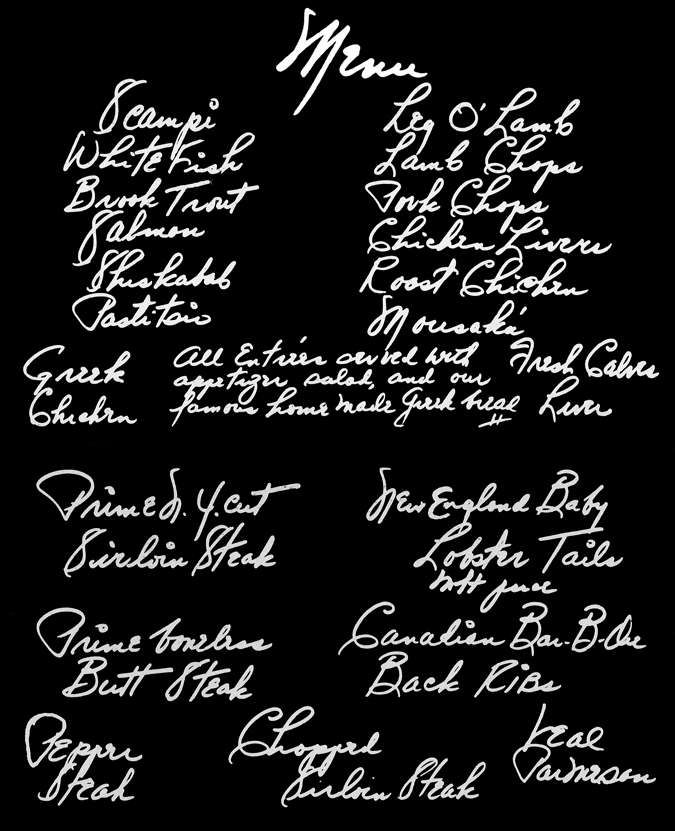 Menu
Scampi
White Fish
Brook Trout
Salmon
Shiskabob
Pastitsio
Leg O' Lamb
Lamb Chops
Pork Chops
Chicken Livers
Roast Chicken
Mousaka
Greek
Chicken
All Entrées served with
appetizer, salad, and our
famous home made Greek bread
Fresh Calves
Liver
Prime N.Y. Cut
Sirloin Steak
New England Baby
Lobster Tails
Prime boneless
Butt Steak
Canadian Bar-B-Que
Back Ribs
Pepper
Steak
Chopped
Sirloin Steak
Veal
Parmesan